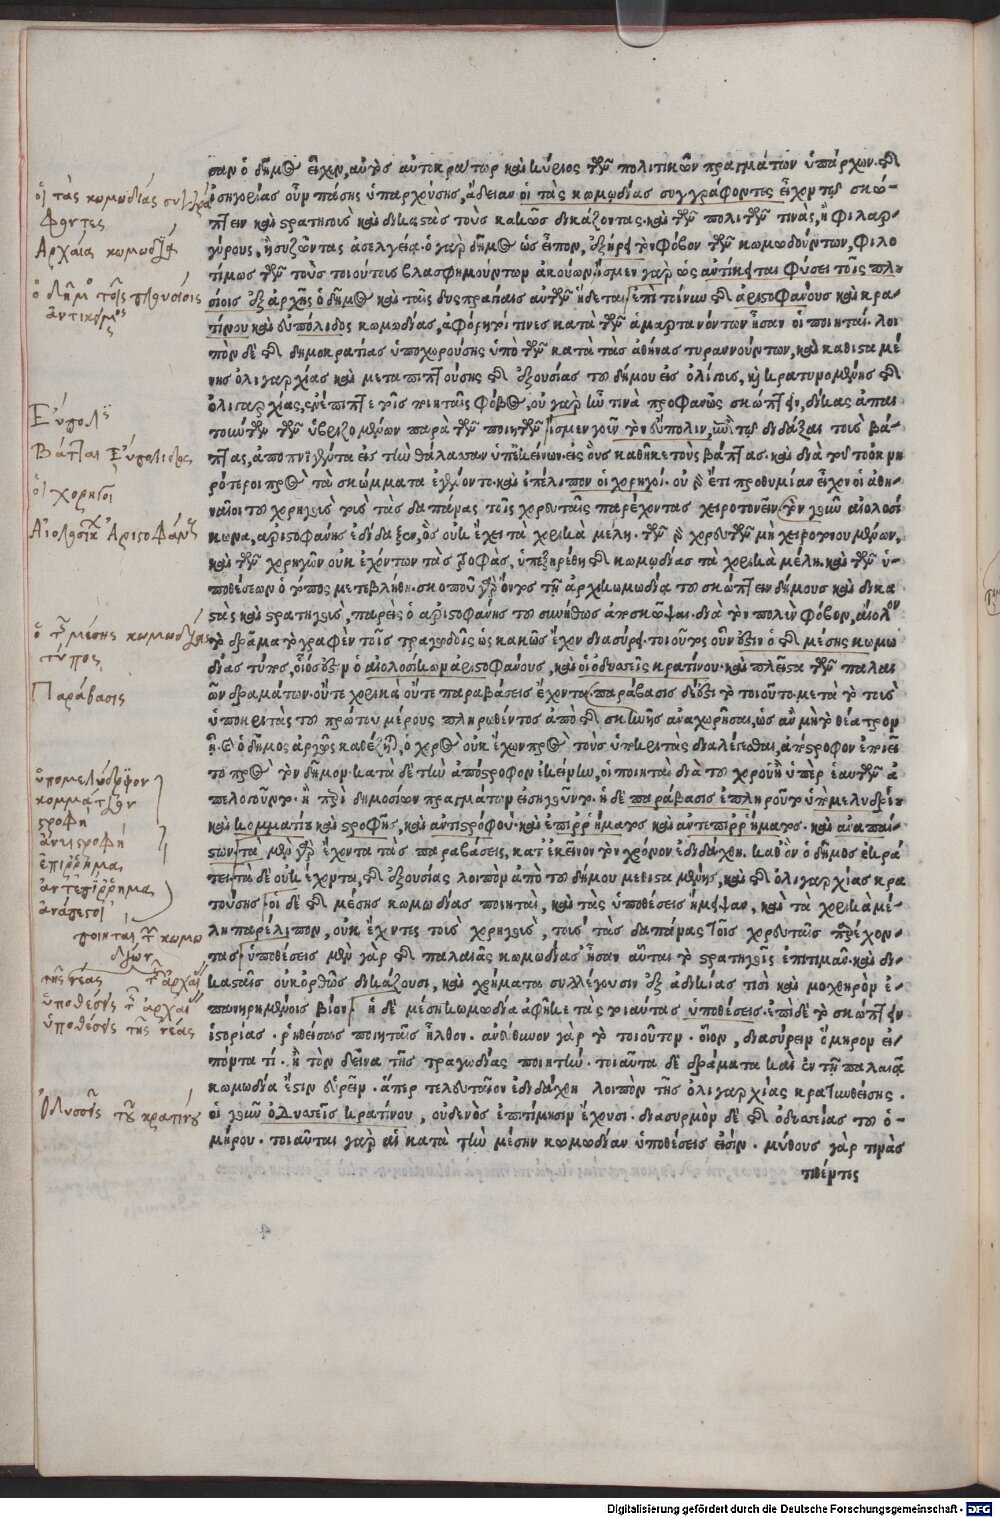 οἱ τὰς κωμωδίας συγγρά
φοντες
Ἀρχαία κωμωδία
ὁ δῆμος τοῖς πλουσίοις
ἀντικείμενος
Εὔπολις
Βάπται Εὐπόλιδος
οἱ χορηγοὶ
Αἰολοσίκων Ἀριστοφάνους
ὁ τῆς μέσης κωμωδίας
τύπος
Παράβασις
κομμάτιον
στροφὴ
ἀντιστροφὴ
ἐπίρρημα
ἀντεπίρρημα
ἀνάπαιστοι
ποιηταὶ τῶν κωμω
διῶν
τῆς νέας τῆς ἀρχαίας
ὑποθέσεις τῆς ἀρχαίας
ὑποθέσεις τῆς νέας
Ὀδυσσεῖς τοῦ κρατίνου
σαν ὁ δῆμος εἶχεν, αὐτὸς αὐτοκράτωρ καὶ κύριος τῶν πολιτικῶν πραγμάτων ὑπάρχων. τῆς
ἰσηγορίας οὖν πᾶσης ὑπαρχούσης, ἄδειαν οἱ τὰς κωμωδίας συγγράφοντες εἶχον τοῦ σκώ-
πτειν καὶ στρατηγοὺς καὶ δικαστὰς τοὺς κακῶς δικάζοντας. καὶ τῶν πολιτῶν τινὰς, ἢ φιλαρ-
γύρους, ἢ συζῶντας ἀσελγεία. ὁ γὰρ δῆμος ὡς εἶπον, ἐξῆρει τὸν φόβον τῶν κωμωδούντων, φιλο
τίμως τῶν τοὺς τοιούτους βλασφημούντων ἀκούων. ἴσμεν γὰρ ὡς ἀντίκειται φύσει τοῖς πλου
σίοις ἐξ ἀρχῆς ὁ δῆμος καὶ ταῖς δυσπραγίαις αὐτῶν ἥδεται. ἐπὶ τοίνυν τῆς ἀριστοφάνους καὶ κρα-
τίνου καὶ εὐπόλιδος κωμωδίας, ἀφόρητοί τινες κατὰ τῶν ἁμαρτανόντων ἦσαν οἱ ποιηταί. λοι
πὸν δὲ τῆς δημοκρατίας ὑποχωρούσης ὑπὸ τῶν κατὰ τὰς ἀθήνας τυραννούντων, καὶ καθισταμέ
νης ὀλιγαρχίας καὶ μεταπιπτούσης τῆς ἐξουσίας τοῦ δήμου εἰς ὀλίγους, καὶ κρατυνομένης τῆς
ὀλιγαρχίας, ἐνέπιπτε τοῖς ποιηταῖς φόβος, οὐ γὰρ ἦν τινὰ προφανῶς σκώπτειν, δίκας ἀπαι
τούντων τῶν ὑβριζομένων παρὰ τῶν ποιητῶν. ἴσμεν γοῦν τὸν εὔπολιν, ἐπὶ τῷ διδάξαι τοὺς βά-
πτας, ἀποπνιγέντα εἰς τὴν θάλασσαν ὑπ' ἐκείνων εἰς οὓς καθῆκε τοὺς βάπτας. καὶ διὰ τοῦτο ὀκνη
ρότεροι πρὸς τὰ σκώμματα ἐγένοντο. καὶ ἐπέλιπον οἱ χορηγοί. οὐ γὰρ ἔτι προθυμίαν εἶχον οἱ ἀθη-
ναῖοι τοὺς χορηγοὺς τοὺς τὰς δαπάνας τοῖς χορευταῖς παρέχοντας χειροτονεῖν. τὸν γοῦν αἰολοσί
κωνα, ἀριστοφάνης ἐδίδαξεν, ὃς οὐκ ἔχει τὰ χορικὰ μέλη. τῶν γὰρ χορευτῶν μὴ χειροτονουμένων,
καὶ τῶν χορηγῶν οὐκ ἐχόντων τὰς τροφὰς, ὑπεξηρέθη τῆς κωμωδίας τὰ χορικὰ μέλη. καὶ τῶν ὑ-
ποθέσεων ὁ τύπος μετεβλήθη. σκοποῦ γὰρ ὄντος τῇ ἀρχαία κωμωδία τοῦ σκώπτειν δήμους καὶ δικα
στὰς καὶ στρατηγοὺς, παρεὶς ὁ ἀριστοφάνης τοῦ συνήθως ἀποσκῶψαι. διὰ τὸν πολὺν φόβον, αἴολον
τὸ δρᾶμα τὸ γραφὲν τοῖς τραγωδοῖς ὡς κακῶς ἔχον διασύρει. τοιοῦτος οὖν ἐστὶν ὁ τῆς μέσης κωμω
δίας τύπος, οἷός ἐστιν ὁ αἰολοσίκων ἀριστοφάνους, καὶ οἱ ὀδυσσεῖς κρατίνου. καὶ πλεῖστα τῶν παλαι
ῶν δραμάτων. οὔτε χορικὰ οὔτε παραβάσεις ἔχοντα. παράβασις δέ ἐστι τὸ τοιοῦτο. μετὰ τὸ τοὺς
ὑποκριτὰς τοῦ πρώτου μέρους πληρωθέντος ἀπὸ τῆς σκηνῆς ἀναχωρῆσαι, ὡς ἂν μὴ τὸ θέατρον
ᾖ. καὶ ὁ δῆμος ἀργὸς καθέζηται, ὁ χορὸς οὐκ ἔχων πρὸς τοὺς ὑποκριτὰς διαλέγεσθαι, ἀπόστροφον ἐποιεῖ
το πρὸς τὸν δῆμον. κατὰ δὲ τὴν ἀπόστροφον ἐκείνην, οἱ ποιηταὶ διὰ τοῦ χοροῦ ἢ ὑπὲρ ἑαυτῶν ἀ
πελογοῦντο. ἢ περὶ δημοσίων πραγμάτων εἰσηγοῦντο. ἡ δὲ παράβασις ἐπληροῦτο ὑπὸ μελυδρίου
καὶ κομματίου καὶ στροφῆς, καὶ ἀντιστρόφου. καὶ ἐπιρρήματος καὶ ἀντεπιρρήματος. καὶ ἀναπαί-
στων. τὰ μὲν γὰρ ἔχοντα τὰς παραβάσεις, κατ' ἐκεῖνον τὸν χρόνον ἐδιδάχθη. καθ' ὃν ὁ δῆμος ἐκρά
τει. τὰ δὲ οὐκ ἔχοντα, τῆς ἐξουσίας λοιπὸν ἀπὸ τοῦ δήμου μεθισταμένης, καὶ τῆς ὀλιγαρχίας κρα
τούσης. οἱ δὲ τῆς μέσης κωμωδίας ποιηταὶ, καὶ τὰς ὑποθέσεις ἤμειψαν, καὶ τὰ χορικὰ μέ-
λη παρέλιπον, οὐκ ἔχοντες τοὺς χορηγοὺς, τοὺς τὰς δαπάνας τοῖς χορευταῖς παρέχον-
τας. ὑποθέσεις μὲν γὰρ τῆς παλαιᾶς κωμωδίας ἦσαν αὗται τὸ στρατηγοῖς ἐπιτιμᾶν. καὶ δι-
κασταῖς οὐκ ὀρθῶς δικάζουσι, καὶ χρήματα συλλέγουσιν ἐξ ἀδικίας τισὶ καὶ μοχθηρὸν ἐ-
πανῃρημένοις βίον. ἡ δὲ μέση κωμωδία ἀφῆκε τὰς τοιαύτας ὑποθέσεις. ἐπὶ δὲ τὸ σκώπτειν
ἱστορίας. ῥηθείσας ποιηταῖς ἦλθον. ἀνεύθυνον γὰρ τὸ τοιοῦτον. οἷον, διασύρειν ὅμηρον εἰ-
πόντα τί. ἢ τὸν δεῖνα τῆς τραγωδίας ποιητήν. τοιαῦτα δὲ δράματα καὶ ἐν τῇ παλαιᾷ
κωμωδία ἔστιν εὑρεῖν. ἅπερ τελευταῖον ἐδιδάχθη λοιπὸν τῆς ὀλιγαρχίας κρατυνθείσης.
οἱ γοῦν ὀδυσσεῖς κρατίνου, οὐδενὸς ἐπιτίμησιν ἔχουσι. διασυρμὸν δὲ τῆς ὀδυσσείας τοῦ ὁ-
μήρου. τοιαῦται γὰρ αἱ κατὰ τὴν μέσην κωμωδίαν ὑποθέσεις εἰσίν. μύθους γὰρ τινὰς
τιθέντες
Digitalisierung gefördert durch die Deutsche Forschungsgemeinschaft - DFG